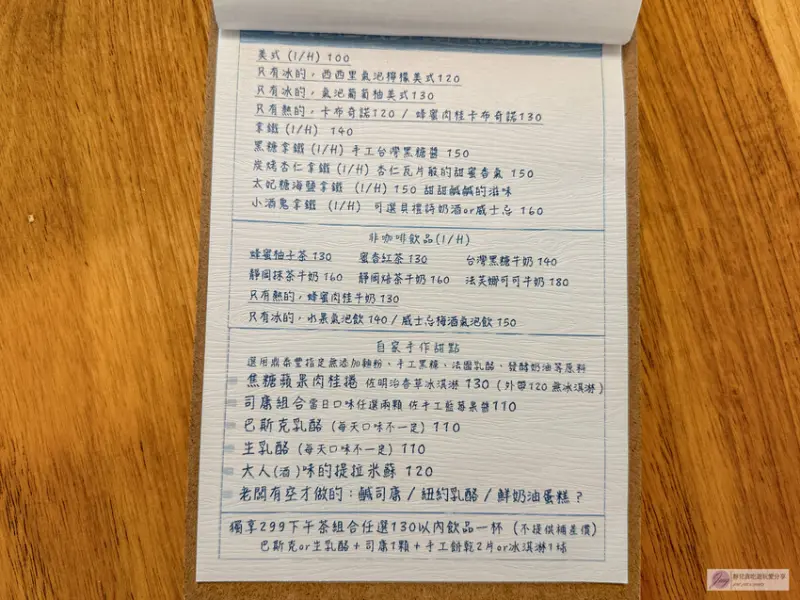 美式 (I/H) 100
只有冰的，西西里氣泡檸檬美式120
只有冰的，氣泡葡萄柚美式130
只有熱的，卡布奇諾120 / 蜂蜜肉桂卡布奇諾130
拿鐵 (I/H) 140
黑糖拿鐵 (I/H) 手工台灣黑糖醬 150
炭烤杏仁拿鐵 (I/H) 杏仁瓦片般的甜蜜香氣 150
太妃糖海鹽拿鐵 (I/H) 150 甜甜鹹鹹的滋味
小酒鬼拿鐵 (I/H) 可選貝禮詩奶酒or威士忌 160
非咖啡飲品(I/H)
蜂蜜柚子茶 130 蜜香紅茶 130 台灣黑糖牛奶 140
靜岡抹茶牛奶 160 靜岡焙茶牛奶 160 法芙娜可可牛奶 180
只有熱的，蜂蜜肉桂牛奶 130
只有冰的，水果氣泡飲 140 / 威士忌梅酒氣泡飲 150
自家手作甜點
選用鼎泰豐指定無添加麵粉、手工黑糖、法國乳酪、發酵奶油等原料
焦糖蘋果肉桂捲 佐明治香草冰淇淋 130 (外帶120 無冰淇淋)
司康組合 當日口味任選兩顆 佐手工藍莓果醬110
巴斯克乳酪 (每天口味不一定) 110
生乳酪 (每天口味不一定) 110
大人(酒)味的提拉米蘇 120
老闆有空才做的：鹹司康 / 紐約乳酪 / 鮮奶油蛋糕？
獨享299下午茶組合任選130以內飲品一杯 (不提供補差價)
巴斯克or生乳酪＋司康1顆＋手工餅乾2片or冰淇淋1球